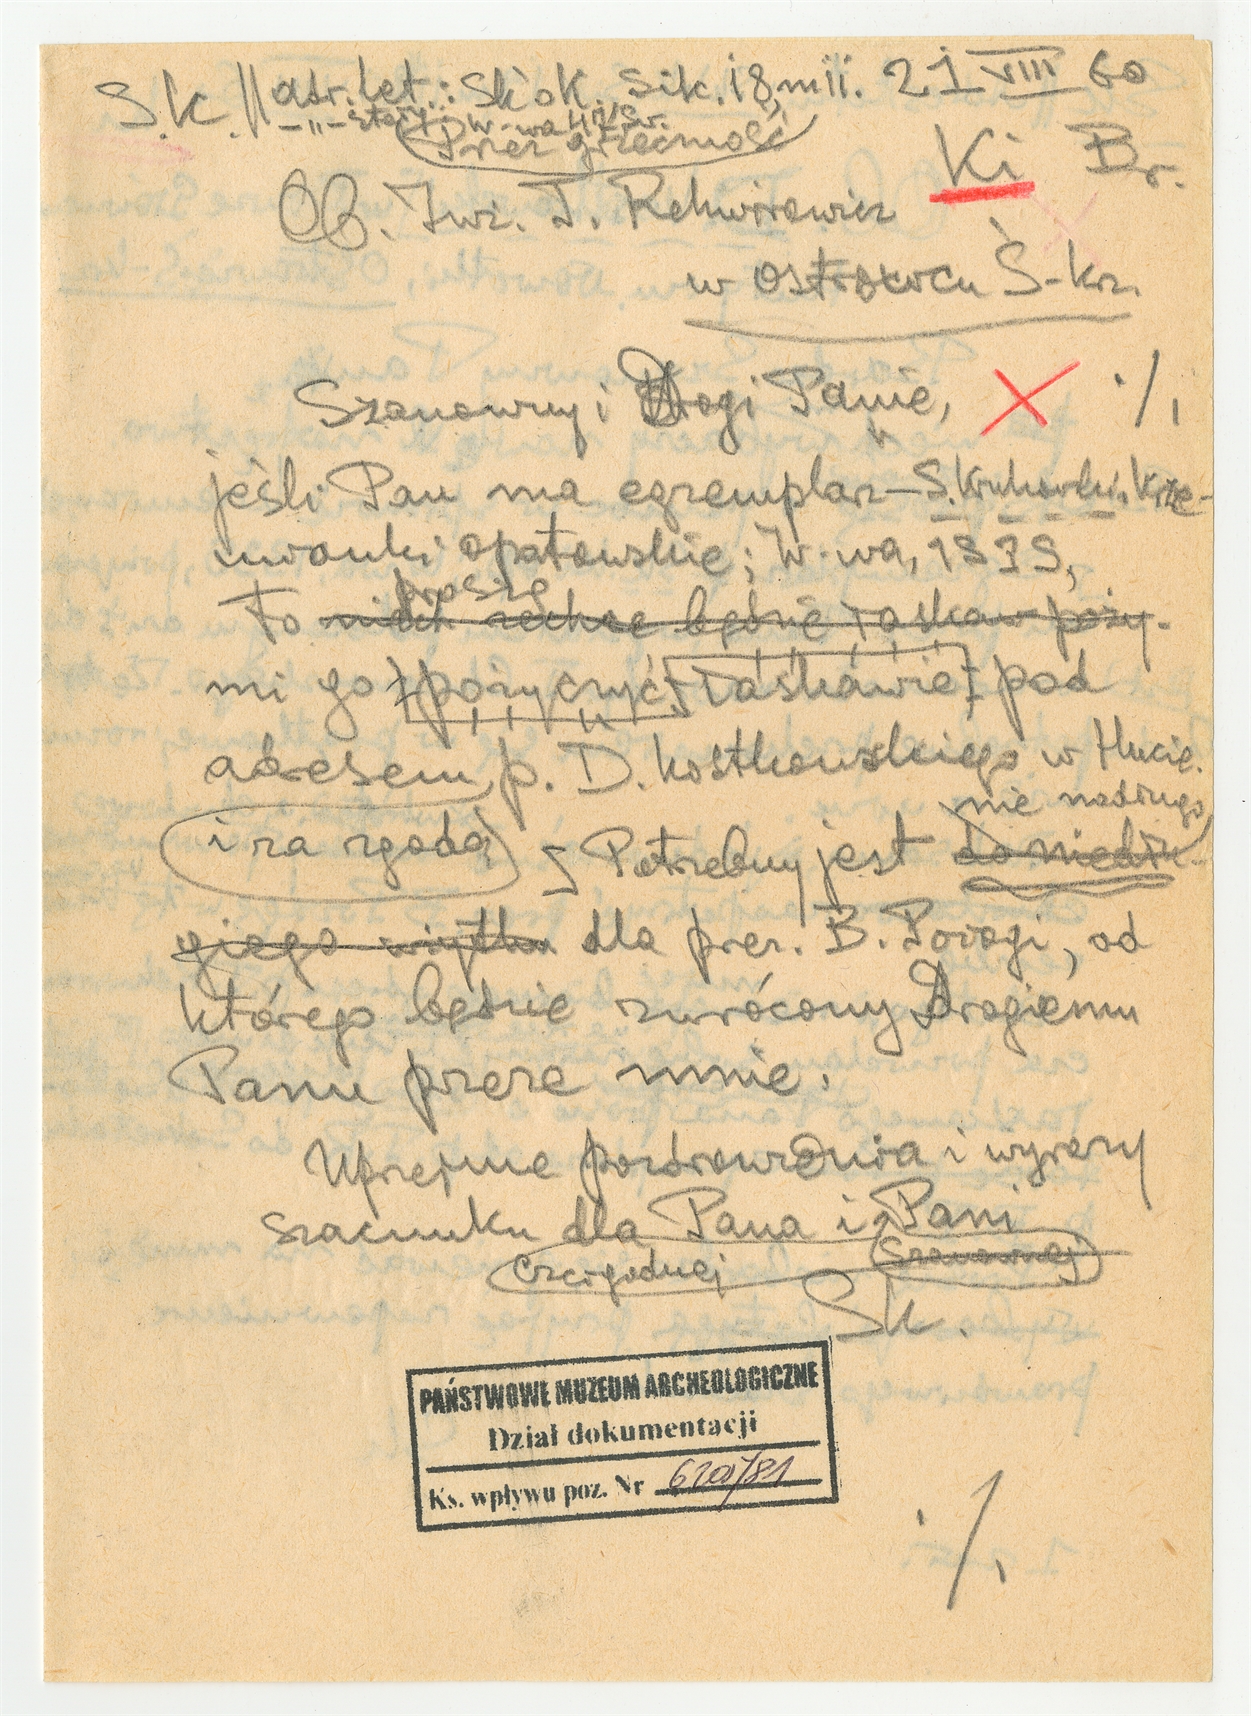 S.K. || adr. let.: Skok. Sik. 18, m ii. 21 VIII 60
-"- stały: W-wa
Przez grzeczność
Ki Br.
Ob. Inż. T. Rekwirowicz
w Ostrowcu Ś-Krz.
Szanowny i Drogi Panie, ./.
jeśli Pan ma egzemplarz – S. Krukowski. Krze-
mionki opatowskie; W-wa, 1939,
proszę
to niech zechce będzie łaskaw poży-
mi go pożyczyć łaskawie pod
adresem p. D. Kostkowskiego w Hucie.
nie nadługo
i za zgodą Potrzebny jest do niedłu-
giego użytku dla prez. B. Porogi, od
którego będzie zwrócony Drogiemu
Panu przeze mnie.
Uprzejme pozdrowienia i wyrazy
szacunku dla Pana i Pani
Czcigodnej Szanownej
Sk.
PAŃSTWOWE MUZEUM ARCHEOLOGICZNE
Dział dokumentacji
Ks. wpływu poz. Nr 6200/81
./.